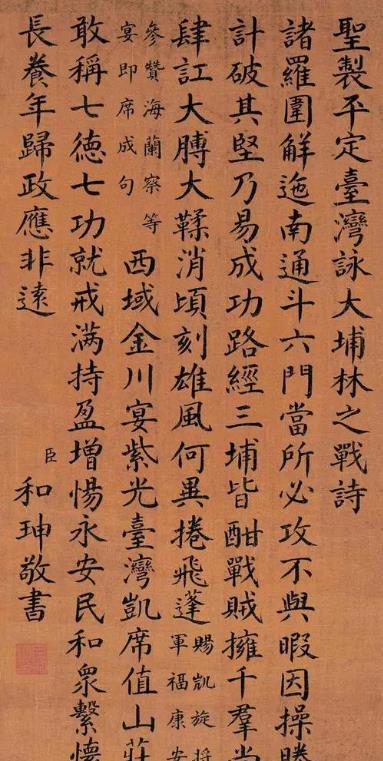 聖製平定臺灣詠大埔林之戰詩
諸羅圍解迤南通斗六門當所必攻不與暇因操勝
計破其堅乃易成功路經三埔皆酣戰賊擁千羣
肆訌大膊大鞣消頃刻雄風何異捲飛蓬
賜凱旋将
軍福康安
參贊海蘭察等
宴即席成句
西域金川宴紫光臺灣凱席值山莊
敢稱七德七功就戒满持盈增惕永安民和衆繫懷
長養年歸政應非遠
臣和珅敬書